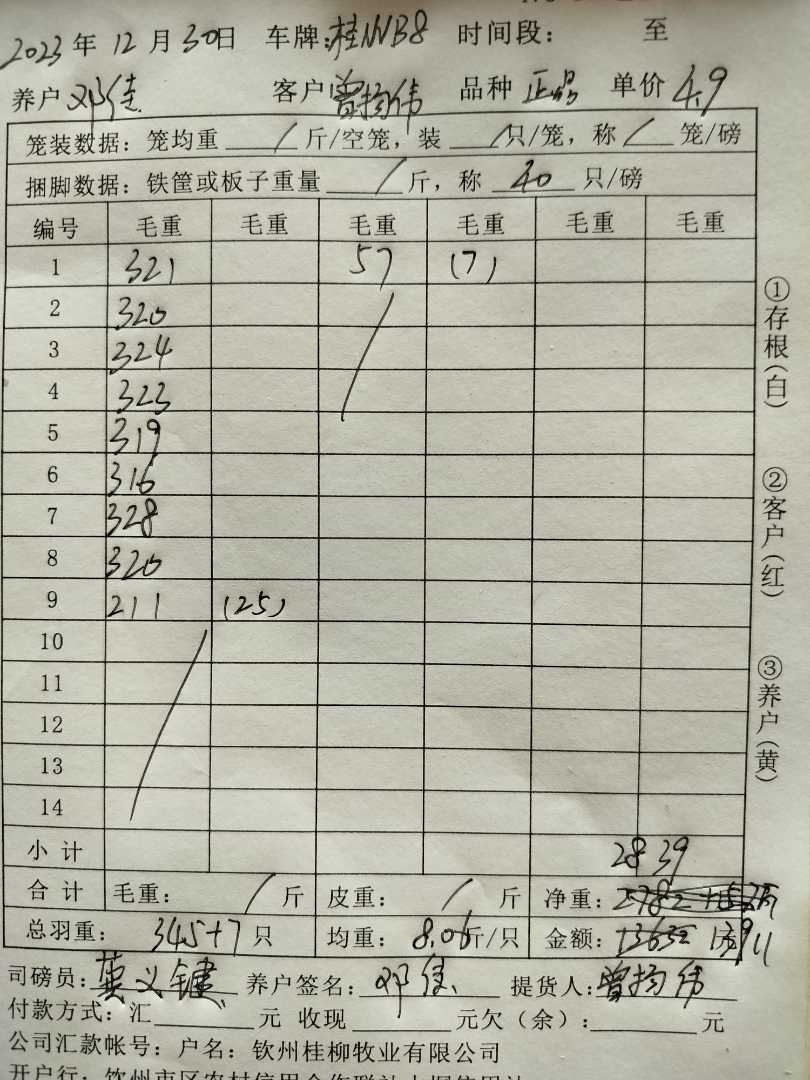 2023年12月30日 车牌: 时间段: 至
养户 邓佳 客户 曾扬伟 品种 正品 单价 4.9
笼装数据: 笼均重 / 斤/空笼, 装 / 只/笼, 称 / 笼/磅
捆脚数据: 铁筐或板子重量 / 斤, 称 40 只/磅
编号 毛重 毛重 毛重 毛重 毛重 毛重
1 321 57 (7)
2 320
3 324
4 323
5 319
6 316
7 328
8 320
9 211 (25)
10
11
12
13
14
小计 2839
合计 毛重: / 斤 皮重: / 斤 净重:
总羽重: 345+7 只 均重: 8.06斤/只 金额: 13911
司磅员: 莫义键 养户签名: 邓佳 提货人: 曾扬伟
付款方式: 汇 元 收现 元欠(余): 元
公司汇款帐号: 户名: 钦州桂柳牧业有限公司
①存根(白)
②客户(红)
③养户(黄)